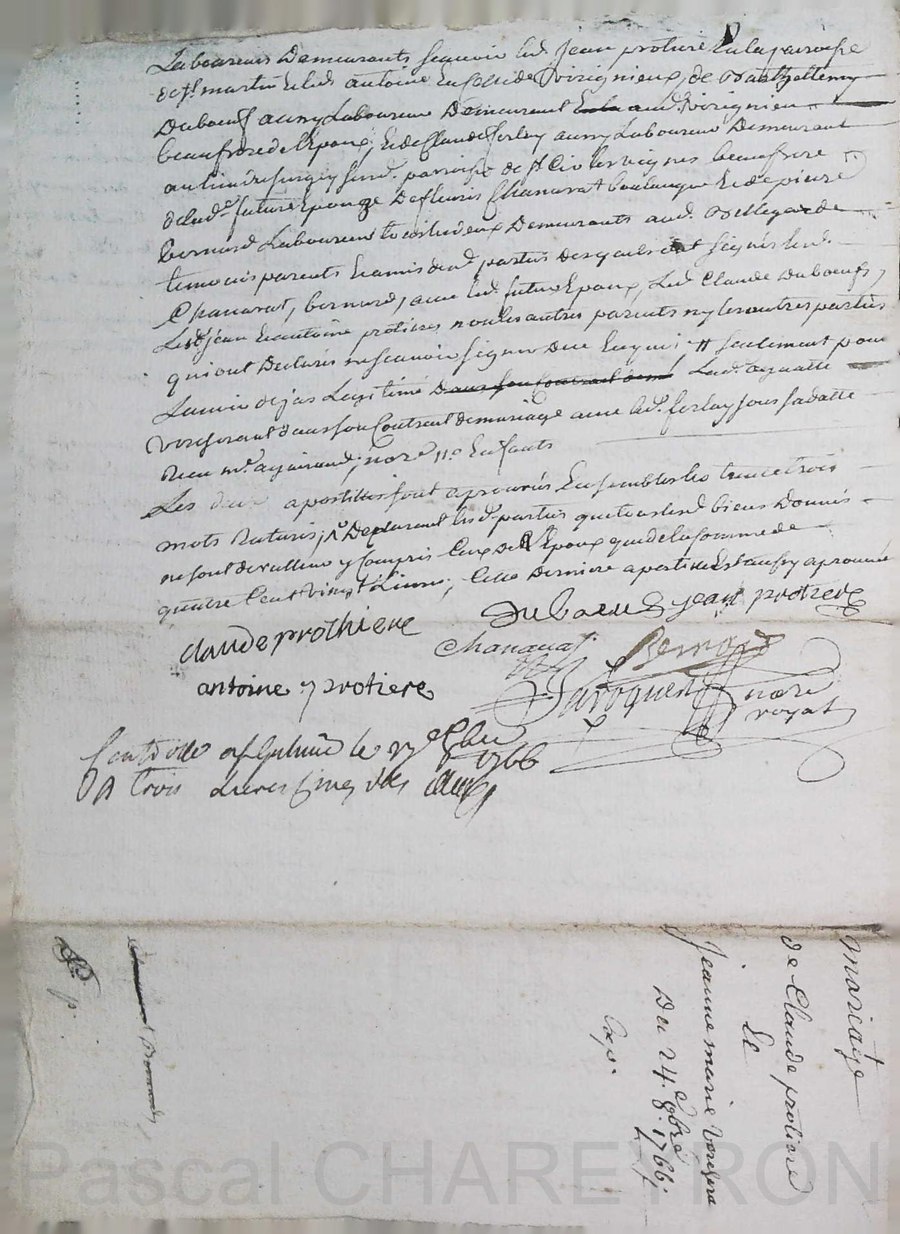 Laboureurs Demeurants sçavoir led. jean protiere En la paroisse
de st. martin Et led. antoine En Celle de Virignieux, de Barthellemy
Duboeuf aussy Laboureur Demeurant aud. Virignieu
beaufrere de l'Epoux, Et de Claude ferlay aussy Laboureur Demeurant
au lieu de paroisse de st. Cir les vignes beaufrere
de lad. future Epouze De fleuris Chanavat boulanger Et de pierre
bernard Laboureur tous les deux Demeurants aud. Bellegarde
temoins parents Et amis desd. parties Desquels ont signés lesd.
Chanavat, bernard, avec led. futur Epoux, Led. Claude Duboeuf,
Lesd. jean Et antoine protieres non les autres parents ny les autres parties
qui ont Declarés ne sçavoir signer De ce Enquis, # seulement pour
La voir dejas Legitimé Lad. ayant
Verserant dans son Contract de mariage avec led. ferlay sous sa datte
Reçu me. nore. # Enfants
Les deux apostilles sont aprouvés Ensembles les trente trois
mots Raturés, Declarant lesd. parties que tous lesd. biens Donnés
ne sont de valleur y Compris Ceux de l'Epoux que de la somme de
quatre Cent vingt Livres, Cette Derniere apostille Est aussy aprouvé
Duboeuf jean protiere
claude prothiere
Chanavat Bernard
antoine protiere
nore
royal
Controllé a le 8bre 1766
R trois Livres Cinq sols
mariage
de Claude protiere
Et
Jeanne marie Versera
Du 24e. 8bre. 1766.
Exp.
Pascal CHAREYRON